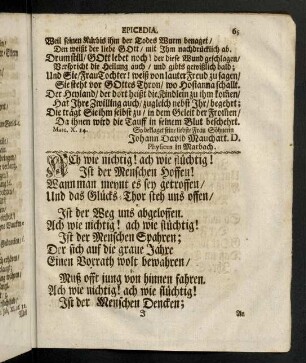 EPICEDIA. 65
Weil seinen Kürbis ihm der Todes Wurm benaget/
Den weißt der liebe GOtt/ mit Ihm nachdrücklich ab.
Drum still/ GOtt lebet noch! der diese Wund geschlagen/
Verspricht die Heilung auch/ und gibts gewißlich bald;
Und Sie/ Frau Tochter! weiß von lauter Freud zu sagen/
Sie steht vor GOttes Thron/ wo Hosianna schallt.
Der Heyland/ der dort heißt die Kindlein zu ihm kommen/
Hat Ihre Zwilling auch/ zugleich nebst Ihr/ begehrt;
Die trägt Sie ihm selbst zu/ in dem Geleit der Frommen/
Da ihnen wird die Tauff in seinem Blut beschehrt.
Marc. X. 14.
So beklaget seine liebste Frau Söhnerin
Johann David Mauchart. D.
Physicus in Marbach.
Ach wie nichtig! ach wie flüchtig!
Ist der Menschen Hoffen!
Wann man meynt es sey getroffen/
Und das Glücks Thor steh uns offen/
Ist der Weg uns abgeloffen.
Ach wie nichtig! ach wie flüchtig!
Ist der Menschen Spahren;
Der sich auf die graue Jahre
Einen Vorrath wolt bewahren/
Muß offt jung von hinnen fahren.
Ach wie nichtig! ach wie flüchtig!
Ist der Menschen Dencken;
J